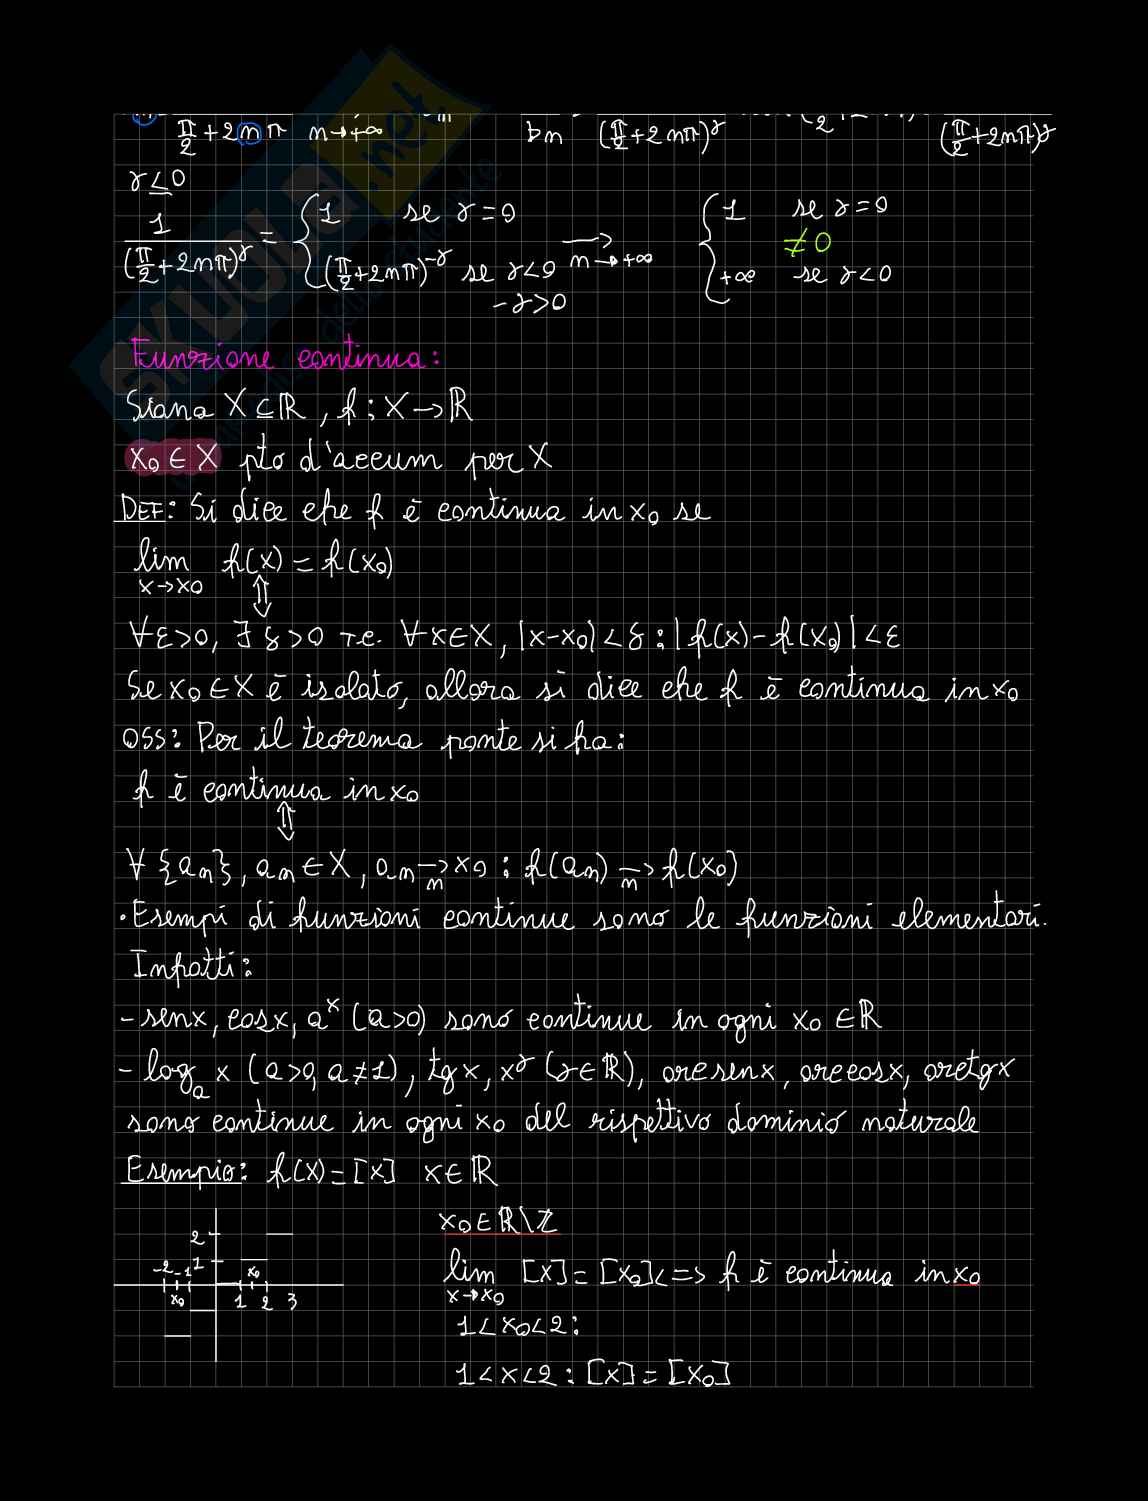 π/2 + 2nπ   n→+∞   bn   (π/2 + 2nπ)^γ   (π/2 + 2nπ)^γ
γ ≤ 0
1/(π/2 + 2nπ)^γ = { 1 se γ = 0   { 1 se γ = 0
≠ 0
(π/2 + 2nπ)^-γ se γ < 0   →   n→+∞   +∞ se γ < 0
-γ > 0
Funzione continua:
Siano X ⊆ ℝ, f: X → ℝ
x₀ ∈ X pto d'accum per X
DEF: Si dice che f è continua in x₀ se
lim f(x) = f(x₀)
x→x₀
⇕
∀ε>0, ∃ δ>0 T.c. ∀x∈X, |x-x₀| < δ : |f(x) - f(x₀)| < ε
Se x₀ ∈ X è isolato, allora si dice che f è continua in x₀
OSS: Per il teorema ponte si ha:
f è continua in x₀
⇕
∀ {an}, an ∈ X, an →n x₀ : f(an) →n f(x₀)
• Esempi di funzioni continue sono le funzioni elementari.
Infatti:
- senx, cosx, a^x (a>0) sono continue in ogni x₀ ∈ ℝ
- log_a x (a>0, a≠1), tgx, x^γ (γ∈ℝ), arcsenx, arccosx, arctgx
sono continue in ogni x₀ del rispettivo dominio naturale
Esempio: f(x) = [x]   x∈ℝ
x₀ ∈ ℝ\ℤ
2
-2 -1 1 x₀
lim [x] = [x₀] <=> f è continua in x₀
x→x₀
x₀ 1 2 3
1 < x₀ < 2:
1 < x < 2 : [x] = [x₀]
SKUOLA.net